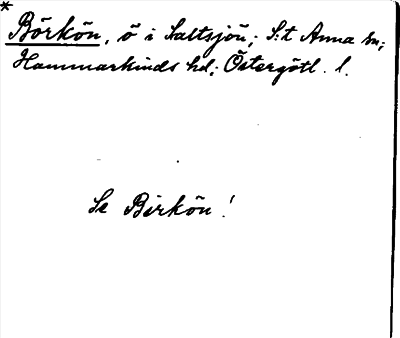 * Börkön, ö i Saltsjön; S:t Anna sn;
Hammarkinds hd; Östergötl. l.
Se Birkön!